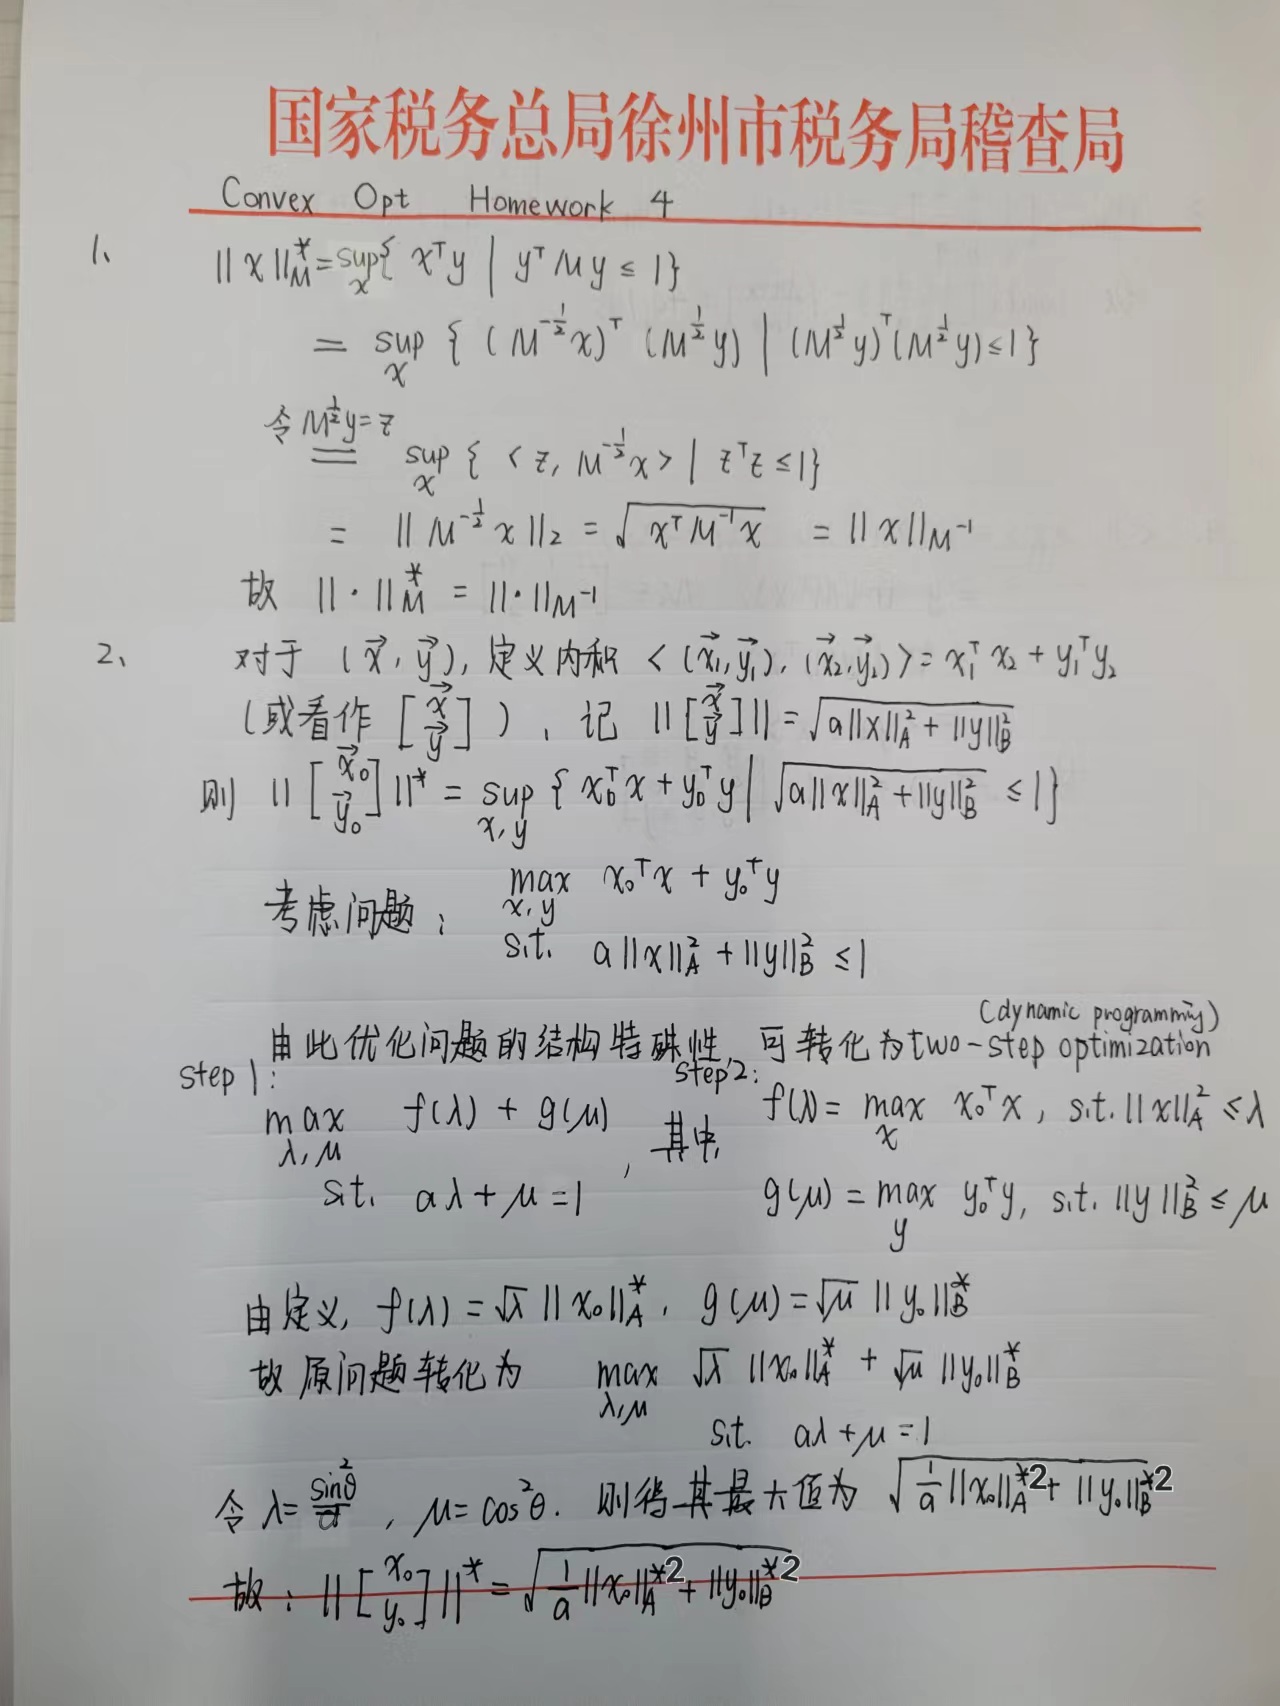 国家税务总局徐州市税务局稽查局
Convex Opt Homework 4
1、 ||x||*_M = sup_x { x^T y | y^T M y ≤ 1 }
= sup_x { (M^{-1/2} x)^T (M^{1/2} y) | (M^{1/2} y)^T (M^{1/2} y) ≤ 1 }
令 M^{1/2} y = z
= sup_x { <z, M^{-1/2} x> | z^T z ≤ 1 }
= ||M^{-1/2} x||_2 = √(x^T M^{-1} x) = ||x||_{M^{-1}}
故 ||·||*_M = ||·||_{M^{-1}}
2、 对于 (x⃗, y⃗), 定义内积 <(x⃗_1, y⃗_1), (x⃗_2, y⃗_2)> = x_1^T x_2 + y_1^T y_2
(或看作 [x⃗ y⃗] ), 记 ||[x⃗ y⃗]|| = √(a||x||_A^2 + ||y||_B^2)
则 ||[x⃗_0 y⃗_0]||* = sup_{x,y} { x_0^T x + y_0^T y | √(a||x||_A^2 + ||y||_B^2) ≤ 1 }
考虑问题: max_{x,y} x_0^T x + y_0^T y
s.t. a||x||_A^2 + ||y||_B^2 ≤ 1
(dynamic programming)
由此优化问题的结构特殊性, 可转化为two-step optimization
step 1: max_{λ,μ} f(λ) + g(μ)
s.t. aλ + μ = 1
, 其中,
step 2: f(λ) = max_x x_0^T x, s.t. ||x||_A^2 ≤ λ
g(μ) = max_y y_0^T y, s.t. ||y||_B^2 ≤ μ
由定义, f(λ) = √λ ||x_0||*_A, g(μ) = √μ ||y_0||*_B
故原问题转化为 max_{λ,μ} √λ ||x_0||*_A + √μ ||y_0||*_B
s.t. aλ + μ = 1
令 λ = sin^2θ/a, μ = cos^2θ. 则得其最大值为 √(1/a ||x_0||_A^{*2} + ||y_0||_B^{*2})
故: ||[x_0 y_0]||* = √(1/a ||x_0||_A^{*2} + ||y_0||_B^{*2})